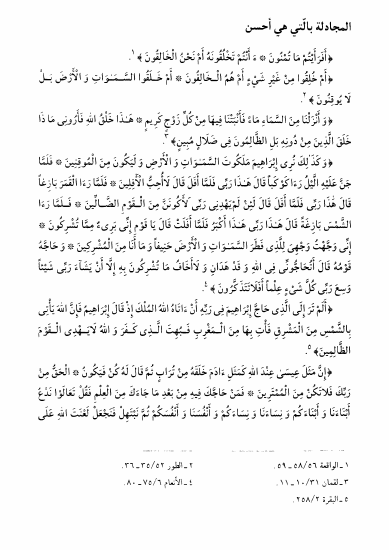 المجادلة بالّتي هي أحسن
﴿أَفَرَأَيْتُمْ مَا تُمْنُونَ * ءَ أَنْتُمْ تَخْلُقُونَهُ أَمْ نَحْنُ الْخَالِقُونَ﴾ ١.
﴿أَمْ خُلِقُوا مِنْ غَيْرِ شَيْءٍ أَمْ هُمُ الْخَالِقُونَ * أَمْ خَلَقُوا السَّمَـٰوَاتِ وَ الْأَرْضَ بَلْ
لَا يُوقِنُونَ﴾ ٢.
﴿وَ أَنْزَلْنَا مِنَ السَّمَاءِ مَاءً فَأَنْبَتْنَا فِيهَا مِنْ كُلِّ زَوْجٍ كَرِيمٍ * هَـٰذَا خَلْقُ اللهِ فَأَرُونِي مَا ذَا
خَلَقَ الَّذِينَ مِنْ دُونِهِ بَلِ الظَّالِمُونَ فِي ضَلَالٍ مُبِينٍ﴾ ٣.
﴿وَ كَذَٰلِكَ نُرِي إِبْرَاهِيمَ مَلَكُوتَ السَّمَـٰوَاتِ وَ الْأَرْضِ وَ لِيَكُونَ مِنَ الْمُوقِنِينَ * فَلَمَّا
جَنَّ عَلَيْهِ الَّيْلُ رَءَا كَوْكَباً قَالَ هَـٰذَا رَبِّي فَلَمَّا أَفَلَ قَالَ لَا أُحِبُّ الْأَفِلِينَ * فَلَمَّا رَءَا الْقَمَرَ بَازِغاً
قَالَ هَٰذَا رَبِّي فَلَمَّا أَفَلَ قَالَ لَئِنْ لَمْ يَهْدِنِي رَبِّي لَأَكُونَنَّ مِنَ الْقَوْمِ الضَّـالِّينَ * فَلَمَّا رَءَا
الشَّمْسَ بَازِغَةً قَالَ هَـٰذَا رَبِّي هَـٰذَا أَكْبَرُ فَلَمَّا أَفَلَتْ قَالَ يَا قَوْمِ إِنِّي بَرِيءٌ مِمَّا تُشْرِكُونَ *
إِنِّي وَجَّهْتُ وَجْهِيَ لِلَّذِي فَطَرَ السَّمَـٰوَاتِ وَ الْأَرْضَ حَنِيفاً وَ مَا أَنَا مِنَ الْمُشْرِكِينَ * وَ حَاجَّهُ
قَوْمُهُ قَالَ أَتُحَاجُّونِّي فِي اللهِ وَ قَدْ هَدَانِ وَ لَا أَخَافُ مَا تُشْرِكُونَ بِهِ إِلَّا أَنْ يَشَآءَ رَبِّي شَيْئاً
وَسِعَ رَبِّي كُلَّ شَيْءٍ عِلْماً أَفَلَا تَتَذَكَّرُونَ﴾ ٤.
﴿أَلَمْ تَرَ إِلَى الَّذِي حَاجَّ إِبْرَاهِيمَ فِي رَبِّهِ أَنْ ءَاتَاهُ اللهُ الْمُلْكَ إِذْ قَالَ إِبْرَاهِيمُ فَإِنَّ اللهَ يَأْتِي
بِالشَّمْسِ مِنَ الْمَشْرِقِ فَأْتِ بِهَا مِنَ الْمَغْرِبِ فَبُهِتَ الَّذِي كَفَرَ وَ اللهُ لَا يَهْدِي الْقَوْمَ
الظَّالِمِينَ﴾ ٥.
﴿إِنَّ مَثَلَ عِيسَىٰ عِنْدَ اللهِ كَمَثَلِ ءَادَمَ خَلَقَهُ مِنْ تُرَابٍ ثُمَّ قَالَ لَهُ كُنْ فَيَكُونُ * الْحَقُّ مِنْ
رَبِّكَ فَلَا تَكُنْ مِنَ الْمُمْتَرِينَ * فَمَنْ حَاجَّكَ فِيهِ مِنْ بَعْدِ مَا جَاءَكَ مِنَ الْعِلْمِ فَقُلْ تَعَالَوْا نَدْعُ
أَبْنَاءَنَا وَ أَبْنَاءَكُمْ وَ نِسَاءَنَا وَ نِسَاءَكُمْ وَ أَنْفُسَنَا وَ أَنْفُسَكُمْ ثُمَّ نَبْتَهِلْ فَنَجْعَلْ لَعْنَتَ اللهِ عَلَى
١ـ الواقعة ٥٨/٥٦ ـ ٥٩. ٢ـ الطور ٣٥/٥٢ ـ ٣٦.
٣ـ لقمان ١٠/٣١ ـ ١١. ٤ـ الأنعام ٧٥/٦ ـ ٨٠.
٥ـ البقرة ٢٥٨/٢.